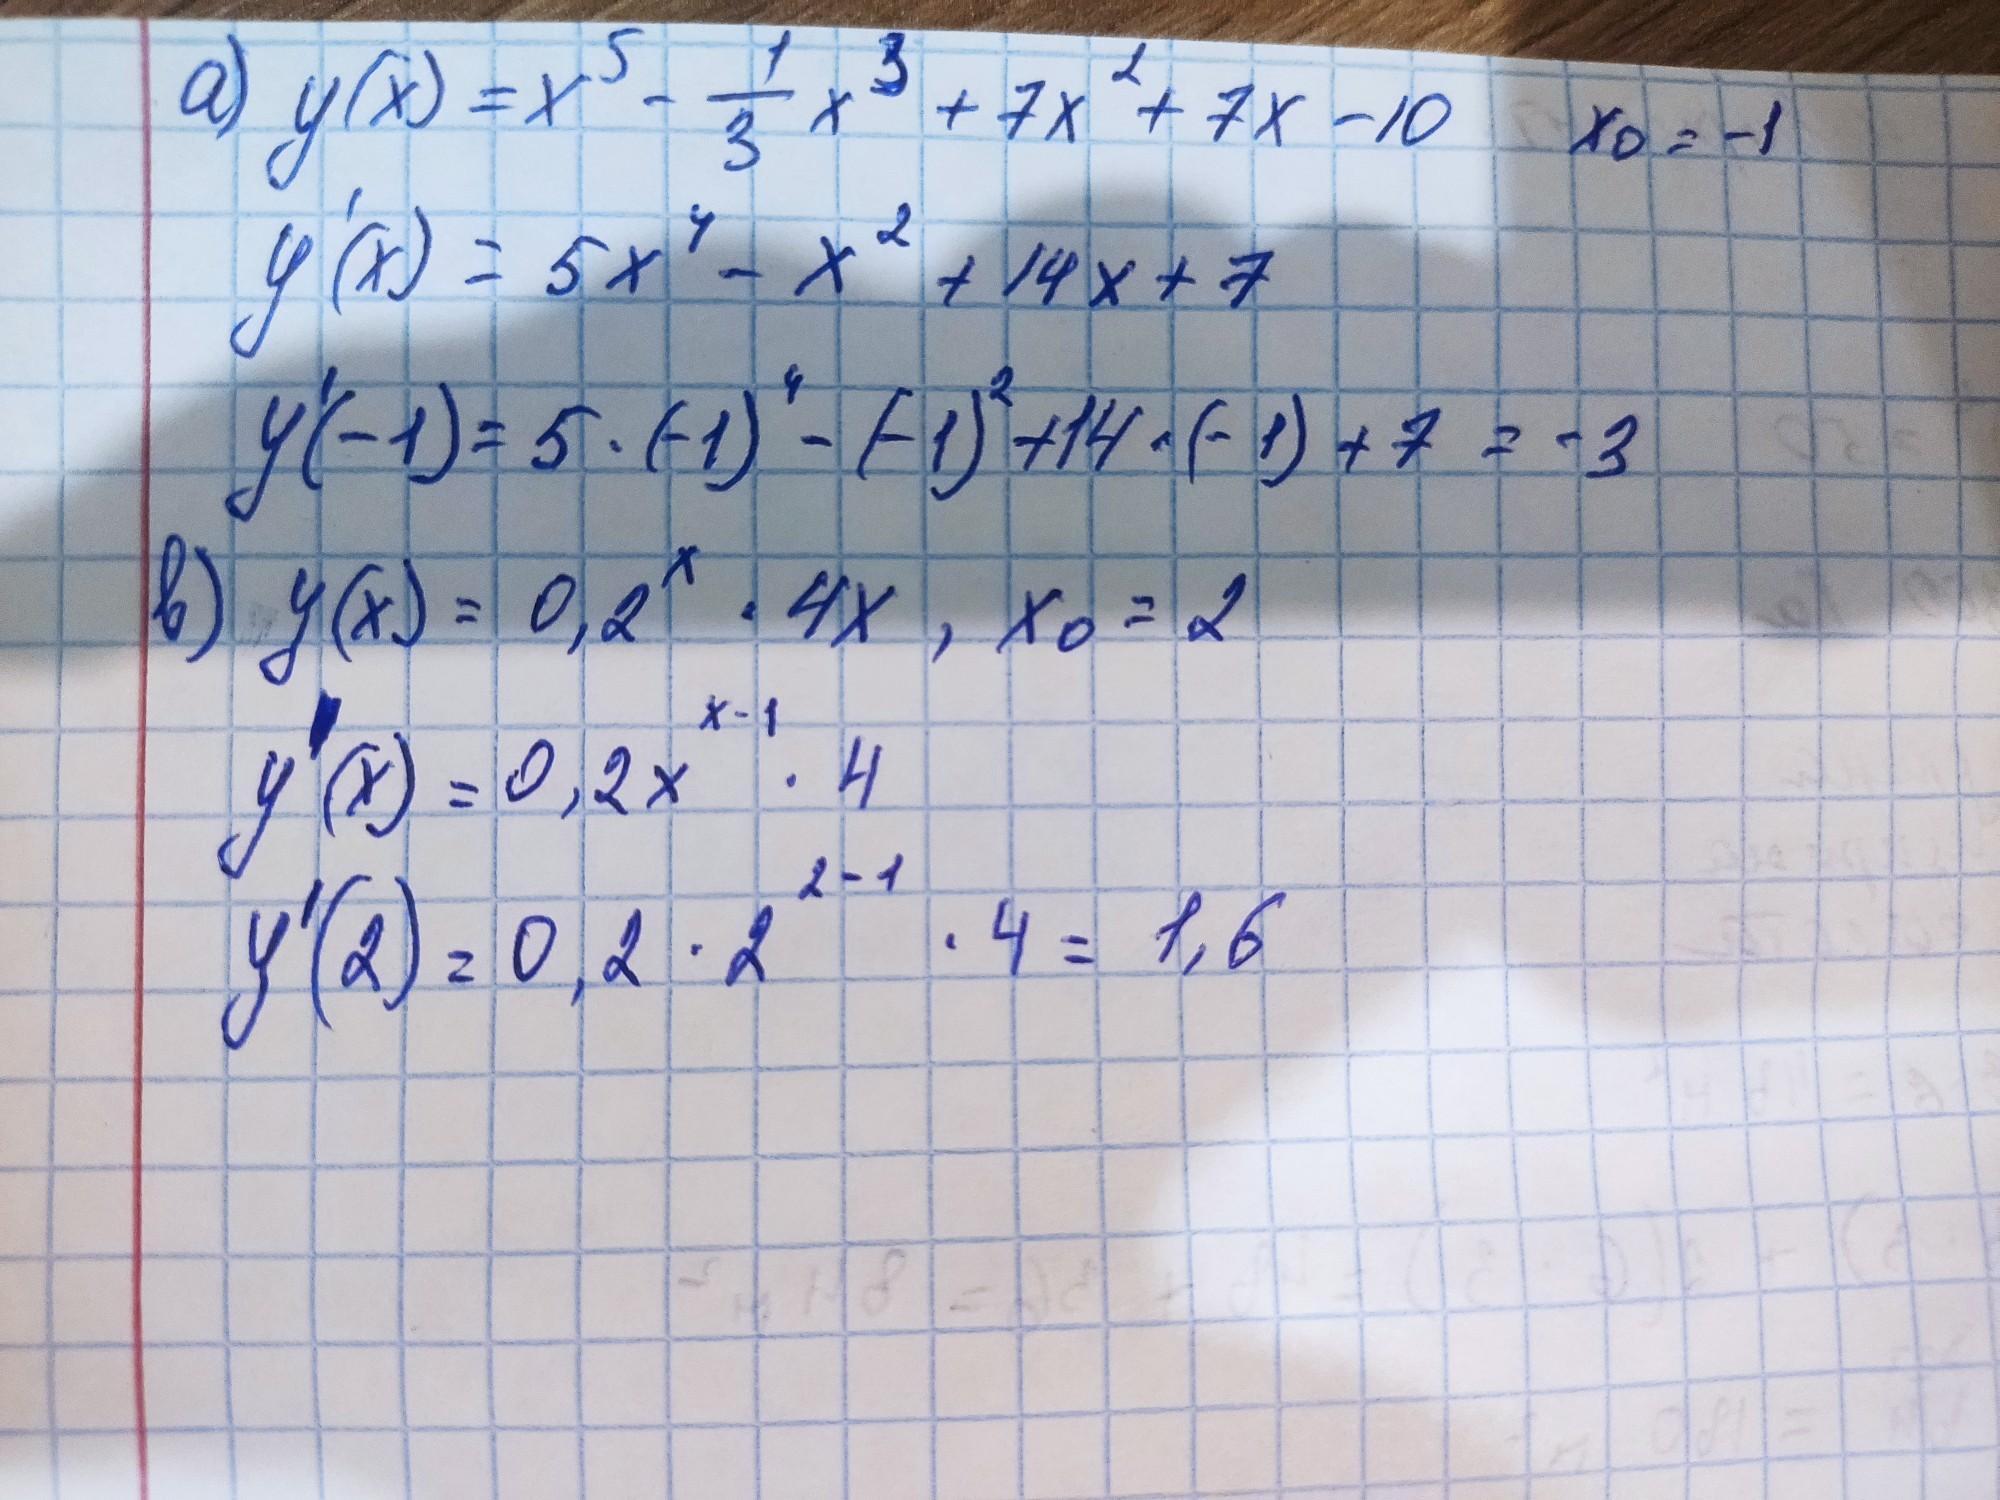 а) y(x) = x⁵ - 1/3 x³ + 7x² + 7x - 10 x₀ = -1
y'(x) = 5x⁴ - x² + 14x + 7
y'(-1) = 5 · (-1)⁴ - (-1)² + 14 · (-1) + 7 = -3
в) y(x) = 0,2ˣ · 4x , x₀ = 2
y'(x) = 0,2x^(x-1) · 4
y'(2) = 0,2 · 2^(2-1) · 4 = 1,6